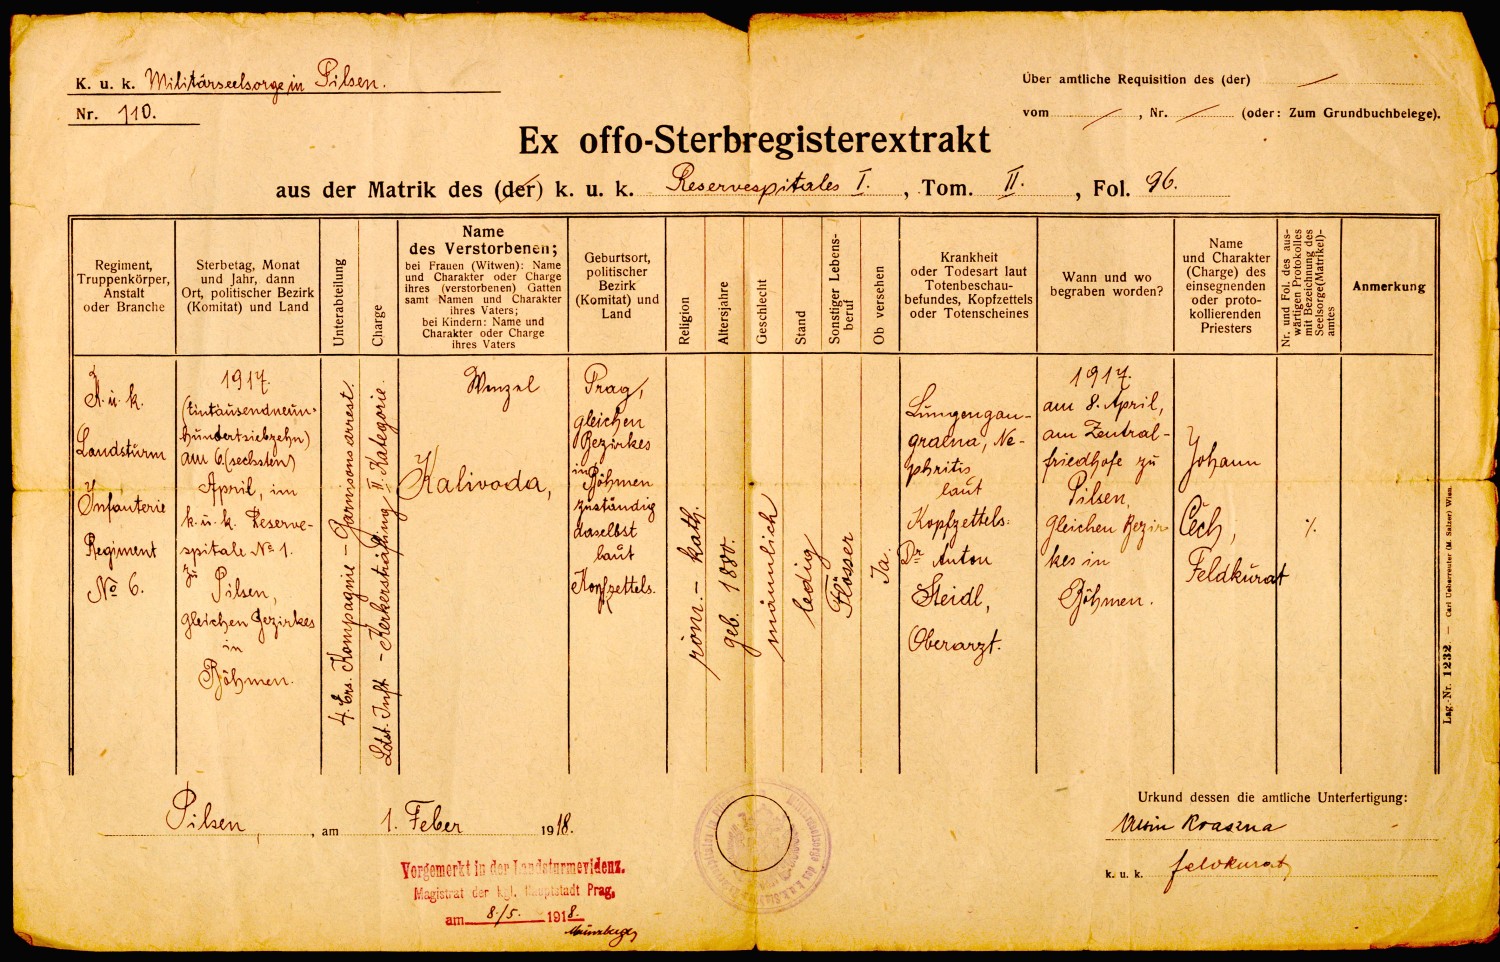 K. u. k. Militärseelsorge in Pilsen.
Nr. 110.
Über amtliche Requisition des (der)
vom , Nr. (oder: Zum Grundbuchbelege).
Ex offo-Sterbregisterextrakt
aus der Matrik des (der) k. u. k. Reservespitales I. , Tom. II. , Fol. 96.
Regiment,
Truppenkörper,
Anstalt
oder Branche
Sterbetag, Monat
und Jahr, dann
Ort, politischer Bezirk
(Komitat) und Land
Unterabteilung
Charge
Name
des Verstorbenen;
bei Frauen (Witwen): Name
und Charakter oder Charge
ihres (verstorbenen) Gatten
samt Namen und Charakter
ihres Vaters;
bei Kindern: Name und
Charakter oder Charge
ihres Vaters
Geburtsort,
politischer
Bezirk
(Komitat) und
Land
Religion
Altersjahre
Geschlecht
Stand
Sonstiger Lebens-
beruf
Ob versehen
Krankheit
oder Todesart laut
Totenbeschau-
befundes, Kopfzettels
oder Totenscheines
Wann und wo
begraben worden?
Name
und Charakter
(Charge) des
einsegnenden
oder proto-
kollierenden
Priesters
Nr. und Fol. des aus-
wärtigen Protokolles
mit Bezeichnung des
Seelsorge(Matrikel)-
amtes
Anmerkung
K. u. k.
Landsturm
Infanterie
Regiment
No 6.
1917.
(eintausendneun-
hundertsiebzehn)
am 6. (sechsten)
April, im
k. u. k. Reserve-
spitale No 1.
zu
Pilsen,
gleichen Bezirkes
in
Böhmen.
4. Ers. Kompagnie - Garnisonsarrest.
Ldst. Inft - Kerkersträfling II. Kategorie.
Wenzel
Kalivoda,
Prag,
gleichen
Bezirkes
in
Böhmen
zuständig
daselbst
laut
Kopfzettels.
röm.- kath.
geb. 1880.
männlich
ledig
Flösser
Ja.
Lungengan-
graena, Ne-
phritis
laut
Kopfzettels:
Dr Anton
Steidl,
Oberarzt.
1917.
am 8. April,
am Zentral-
friedhofe zu
Pilsen,
gleichen Bezir-
kes in
Böhmen.
Johann
Čech,
Feldkurat
%
Lag.-Nr. 1232. — Carl Ueberreuter (M. Salzer) Wien.
Pilsen, , am 1. Feber 1918.
Urkund dessen die amtliche Unterfertigung:
Albin Kraszna
k. u. k. Feldkurat
Vorgemerkt in der Landsturmevidenz.
Magistrat der kgl. Hauptstadt Prag,
am 8./5. 1918.